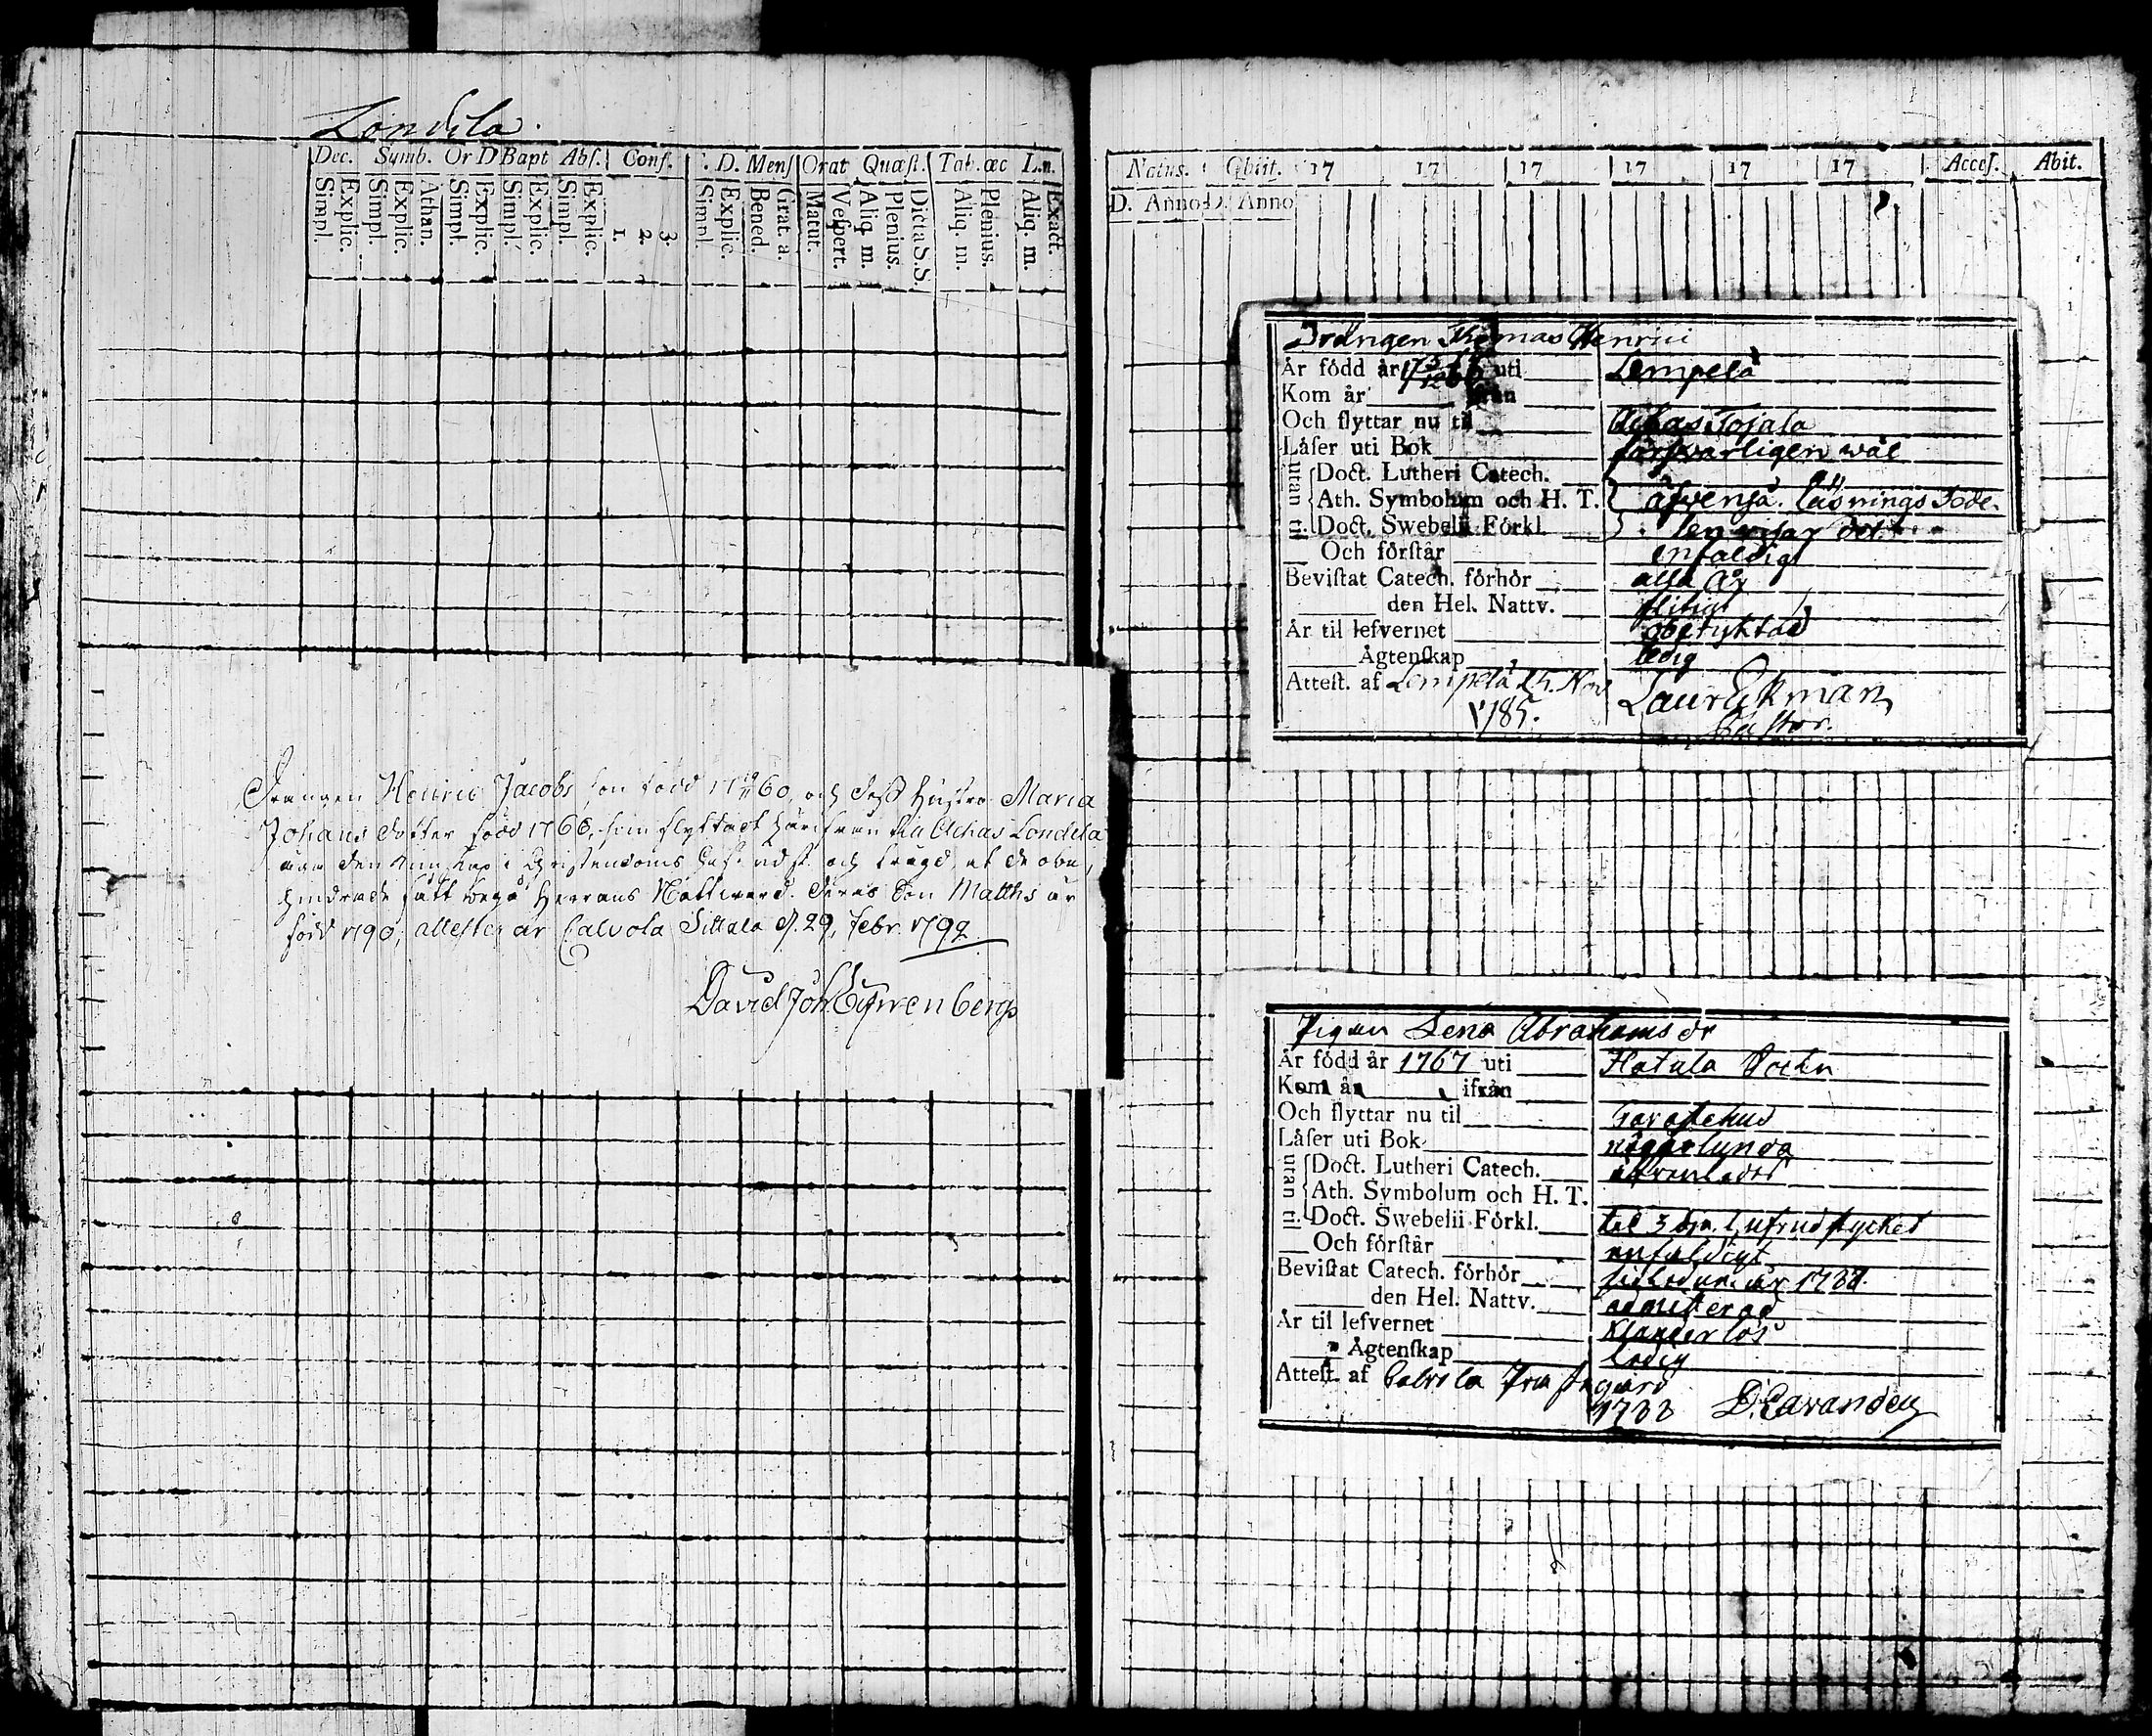 Londila.
Dec. Symb. Or D Bapt Abs. Conf. D. Mens Orat Quæst. Tab. œc L.n.
Simpl. Explic. Simpl. Explic. Athan. Simpl. Explic. Simpl. Explic. Simpl. Explic. 1. 2. 3. Simpl. Explic. Bened. Grat. a. Matut. Vespert. Aliq. m. Plenius. Dicta S.S. Aliq. m. Plenius. Aliq. m. Exact.
Drängen Henric Jacobs son född 17 60, och dess hustru Maria
Johans dotter född 1766, som flyttadt härifrån till Achas Londila
äga den kunskap i Christendoms och at de obe,
hindrade fått begå Herrans Nattward. Deras Son Matths är
född 1790; attesterar Calvola Sittala d. 29, Febr. 1792
David Joh.
Natus. Obiit. 17 17 17 17 17 17 Access. Abit.
D. Anno D. Anno
Drängen Thomas Henrici
Är född år uti Lempelä
Kom år ifrån
Och flyttar nu til Achas Tojala
Låser uti Bok försvarligen wäl
utan til
Doct. Lutheri Catech.
Ath. Symbolum och H. T. äfvenså. läsnings Sede-
Doct. Swebelii Förkl. len wisar det.
Och förstår enfaldigt
Bevistat Catech. förhör alla år
den Hel. Nattv. flitigt
Är til lefvernet obetyktad
Ågtenskap ledig
Attest. af Lempelä Nov Laur Ekman
1785. Pastor.
Pigan Lena Abrahams dr
Är född år 1767 uti Hatula Sockn
Kom år ifrån
Och flyttar nu til Tavastehus
Låser uti Bok någorlunda
utan til
Doct. Lutheri Catech. äfvenledes
Ath. Symbolum och H. T.
Doct. Swebelii Förkl. til 3 hufvudstycket
Och förstår enfaldigt
Bevistat Catech. förhör sidstedne år 1788.
den Hel. Nattv. admitterad
Är til lefvernet klanderlös
Ågtenskap ledig
Attest. af Calvola Prästegård
1788 D. Cavander